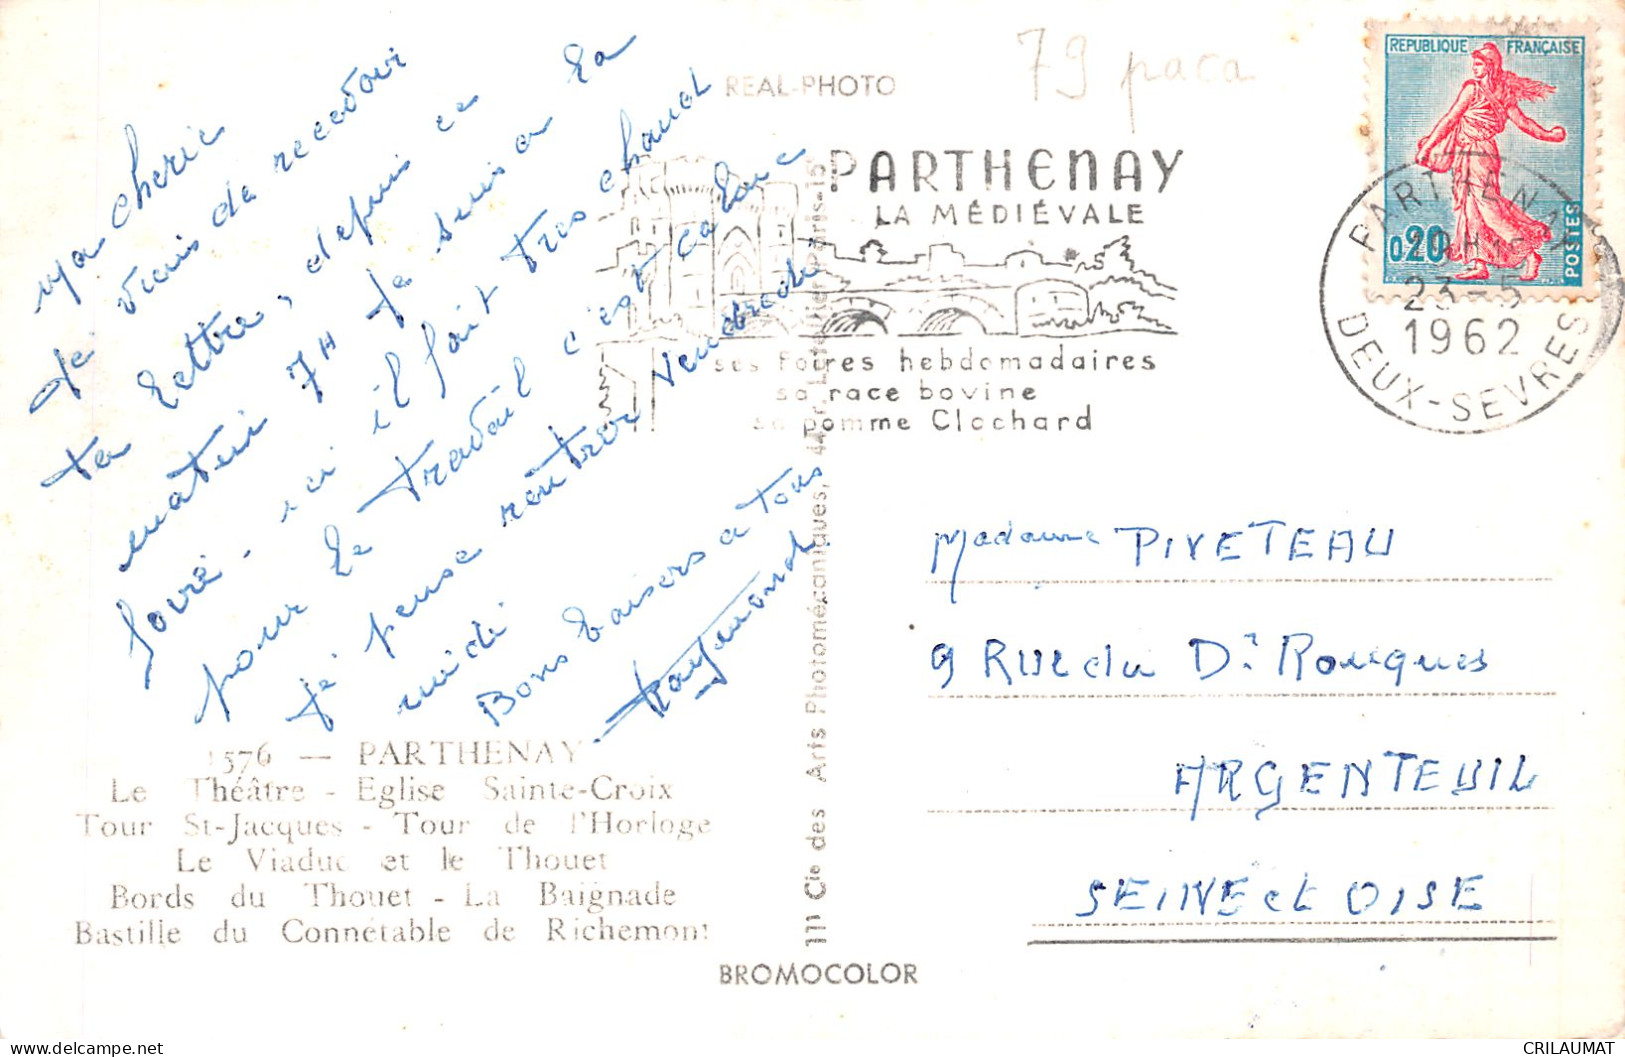 REAL-PHOTO
79 paca
REPUBLIQUE FRANÇAISE
0,20
POSTES
PARTHENAY
23-5
1962
DEUX-SEVRES
PARTHENAY
LA MÉDIÉVALE
ses foires hebdomadaires
sa race bovine
sa pomme Clochard
Ma cherie
Je viens de recevoir
ta lettre, depuis ce
matin 7H je suis a la
foire - ici il fait tres chaud
pour le travail c'est calme
je pense rentrer vendredi
midi
Bons baisers a tous
Raymond
Madame PIVETEAU
9 Rue du Dr Rouques
ARGENTEUIL
SEINE et OISE
1576 — PARTHENAY
Le Théâtre - Eglise Sainte-Croix
Tour St-Jacques - Tour de l'Horloge
Le Viaduc et le Thouet
Bords du Thouet - La Baignade
Bastille du Connétable de Richemont
Cie des Arts Photomécaniques, Paris-15
BROMOCOLOR
CRILAUMAT